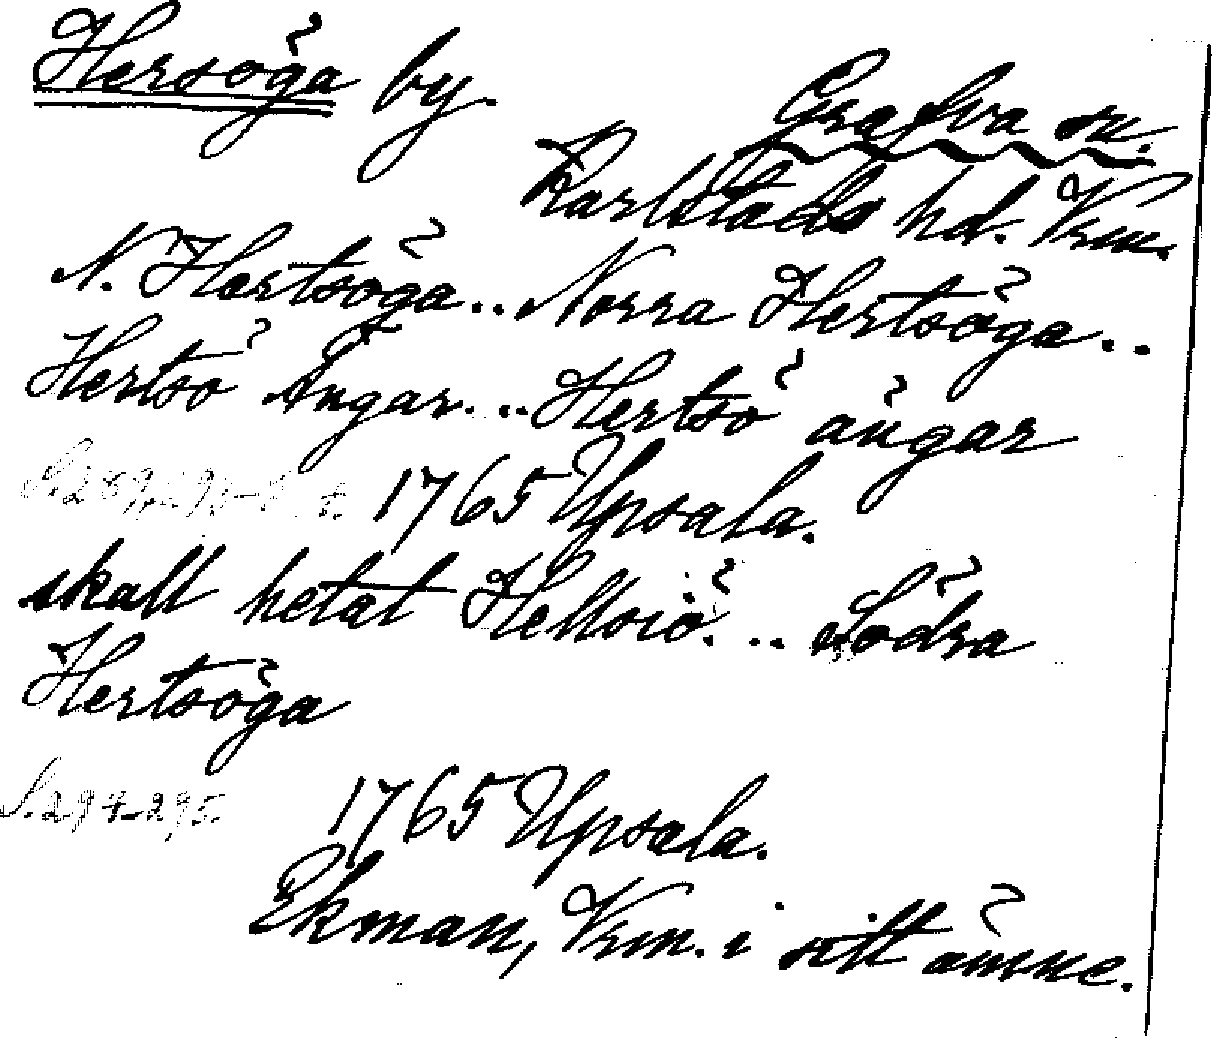 Hersöga by.
Grafva sn.
Karlstads hd. Vrm.
N. Hertsöga.. Norra Hertsöga..
Hertsö Ängar... Hertsö ängar
1765 Upsala.
skall hetat Hellsiö... Södra
Hertsöga
S. 294-295.
1765 Upsala.
Ekman, Vrm. i sitt ämne.